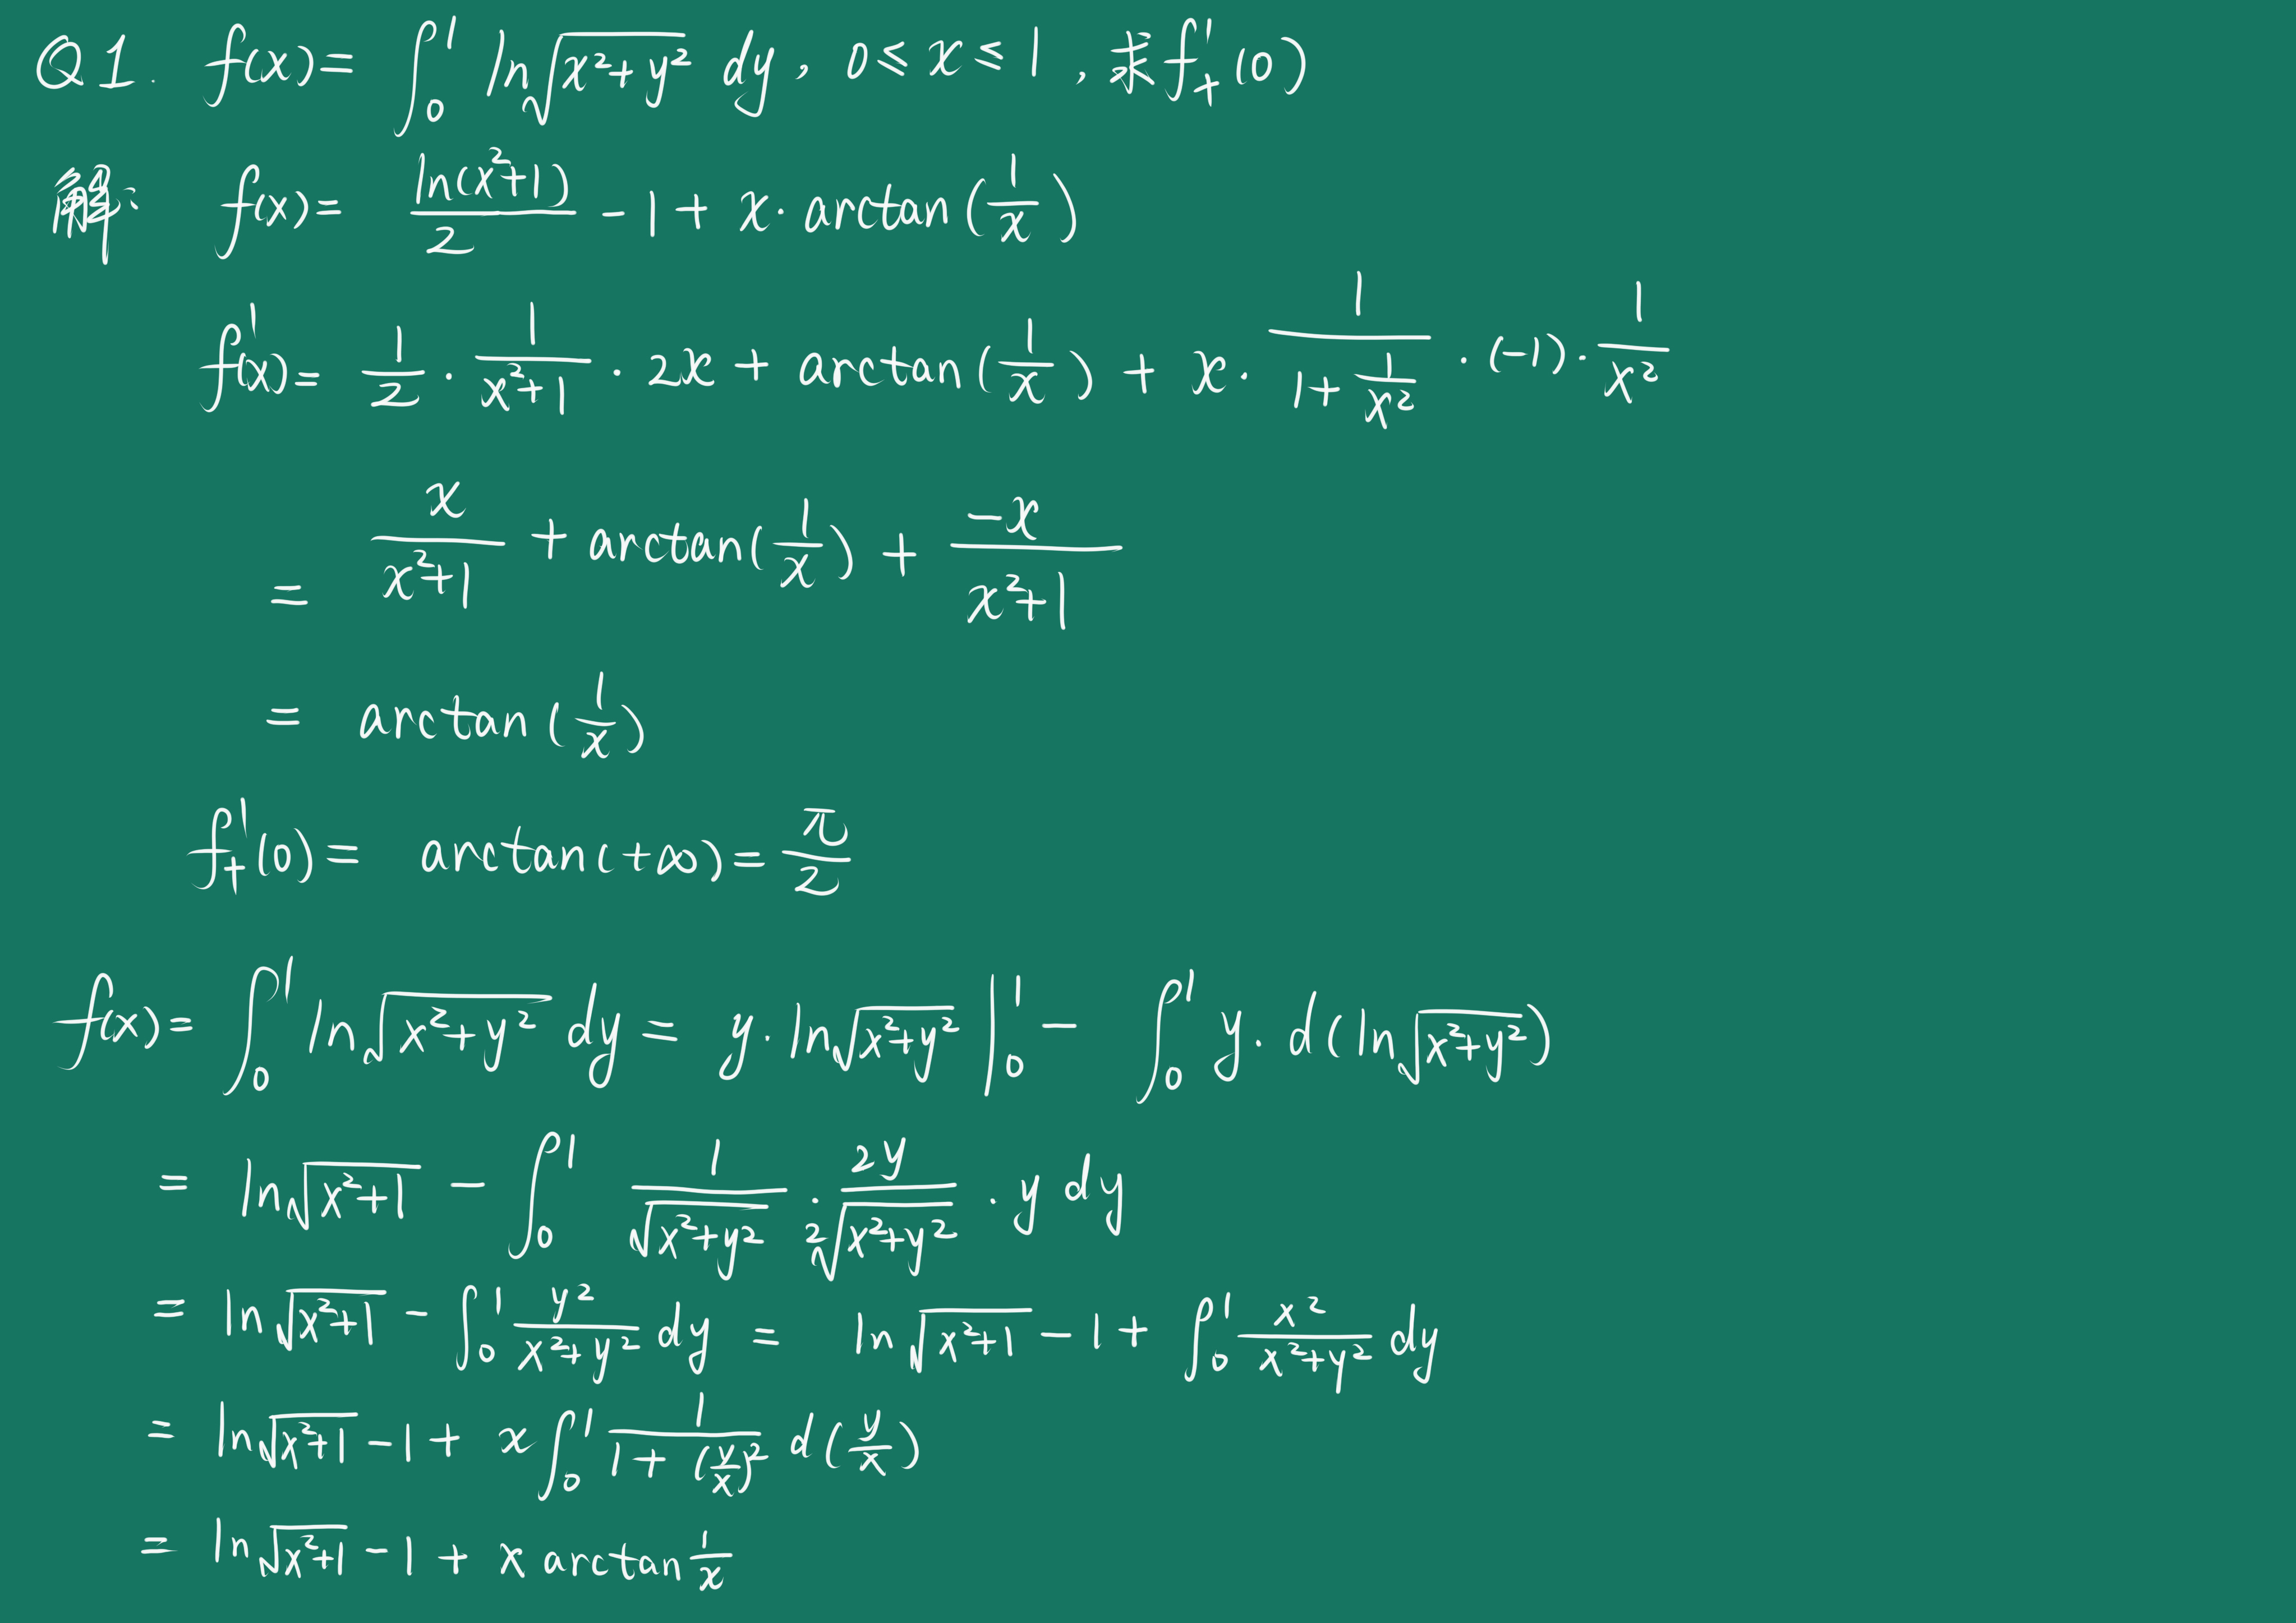 Q1. f(x)= ∫₀¹ ln√(x²+y²) dy, 0≤x≤1, 求f'₊(0)
解: f(x)= ln(x²+1)/2 - 1 + x·arctan(1/x)
f'(x)= 1/2 · 1/(x²+1) · 2x + arctan(1/x) + x · 1/(1+1/x²) · (-1) · 1/x²
= x/(x²+1) + arctan(1/x) + -x/(x²+1)
= arctan(1/x)
f'₊(0)= arctan(+∞)= π/2
f(x)= ∫₀¹ ln√(x²+y²) dy = y·ln√(x²+y²) |₀¹ - ∫₀¹ y·d(ln√(x²+y²))
= ln√(x²+1) - ∫₀¹ 1/√(x²+y²) · 2y/(2√(x²+y²)) · y dy
= ln√(x²+1) - ∫₀¹ y²/(x²+y²) dy = ln√(x²+1) - 1 + ∫₀¹ x²/(x²+y²) dy
= ln√(x²+1) - 1 + x∫₀¹ 1/(1+(y/x)²) d(y/x)
= ln√(x²+1) - 1 + x arctan 1/x